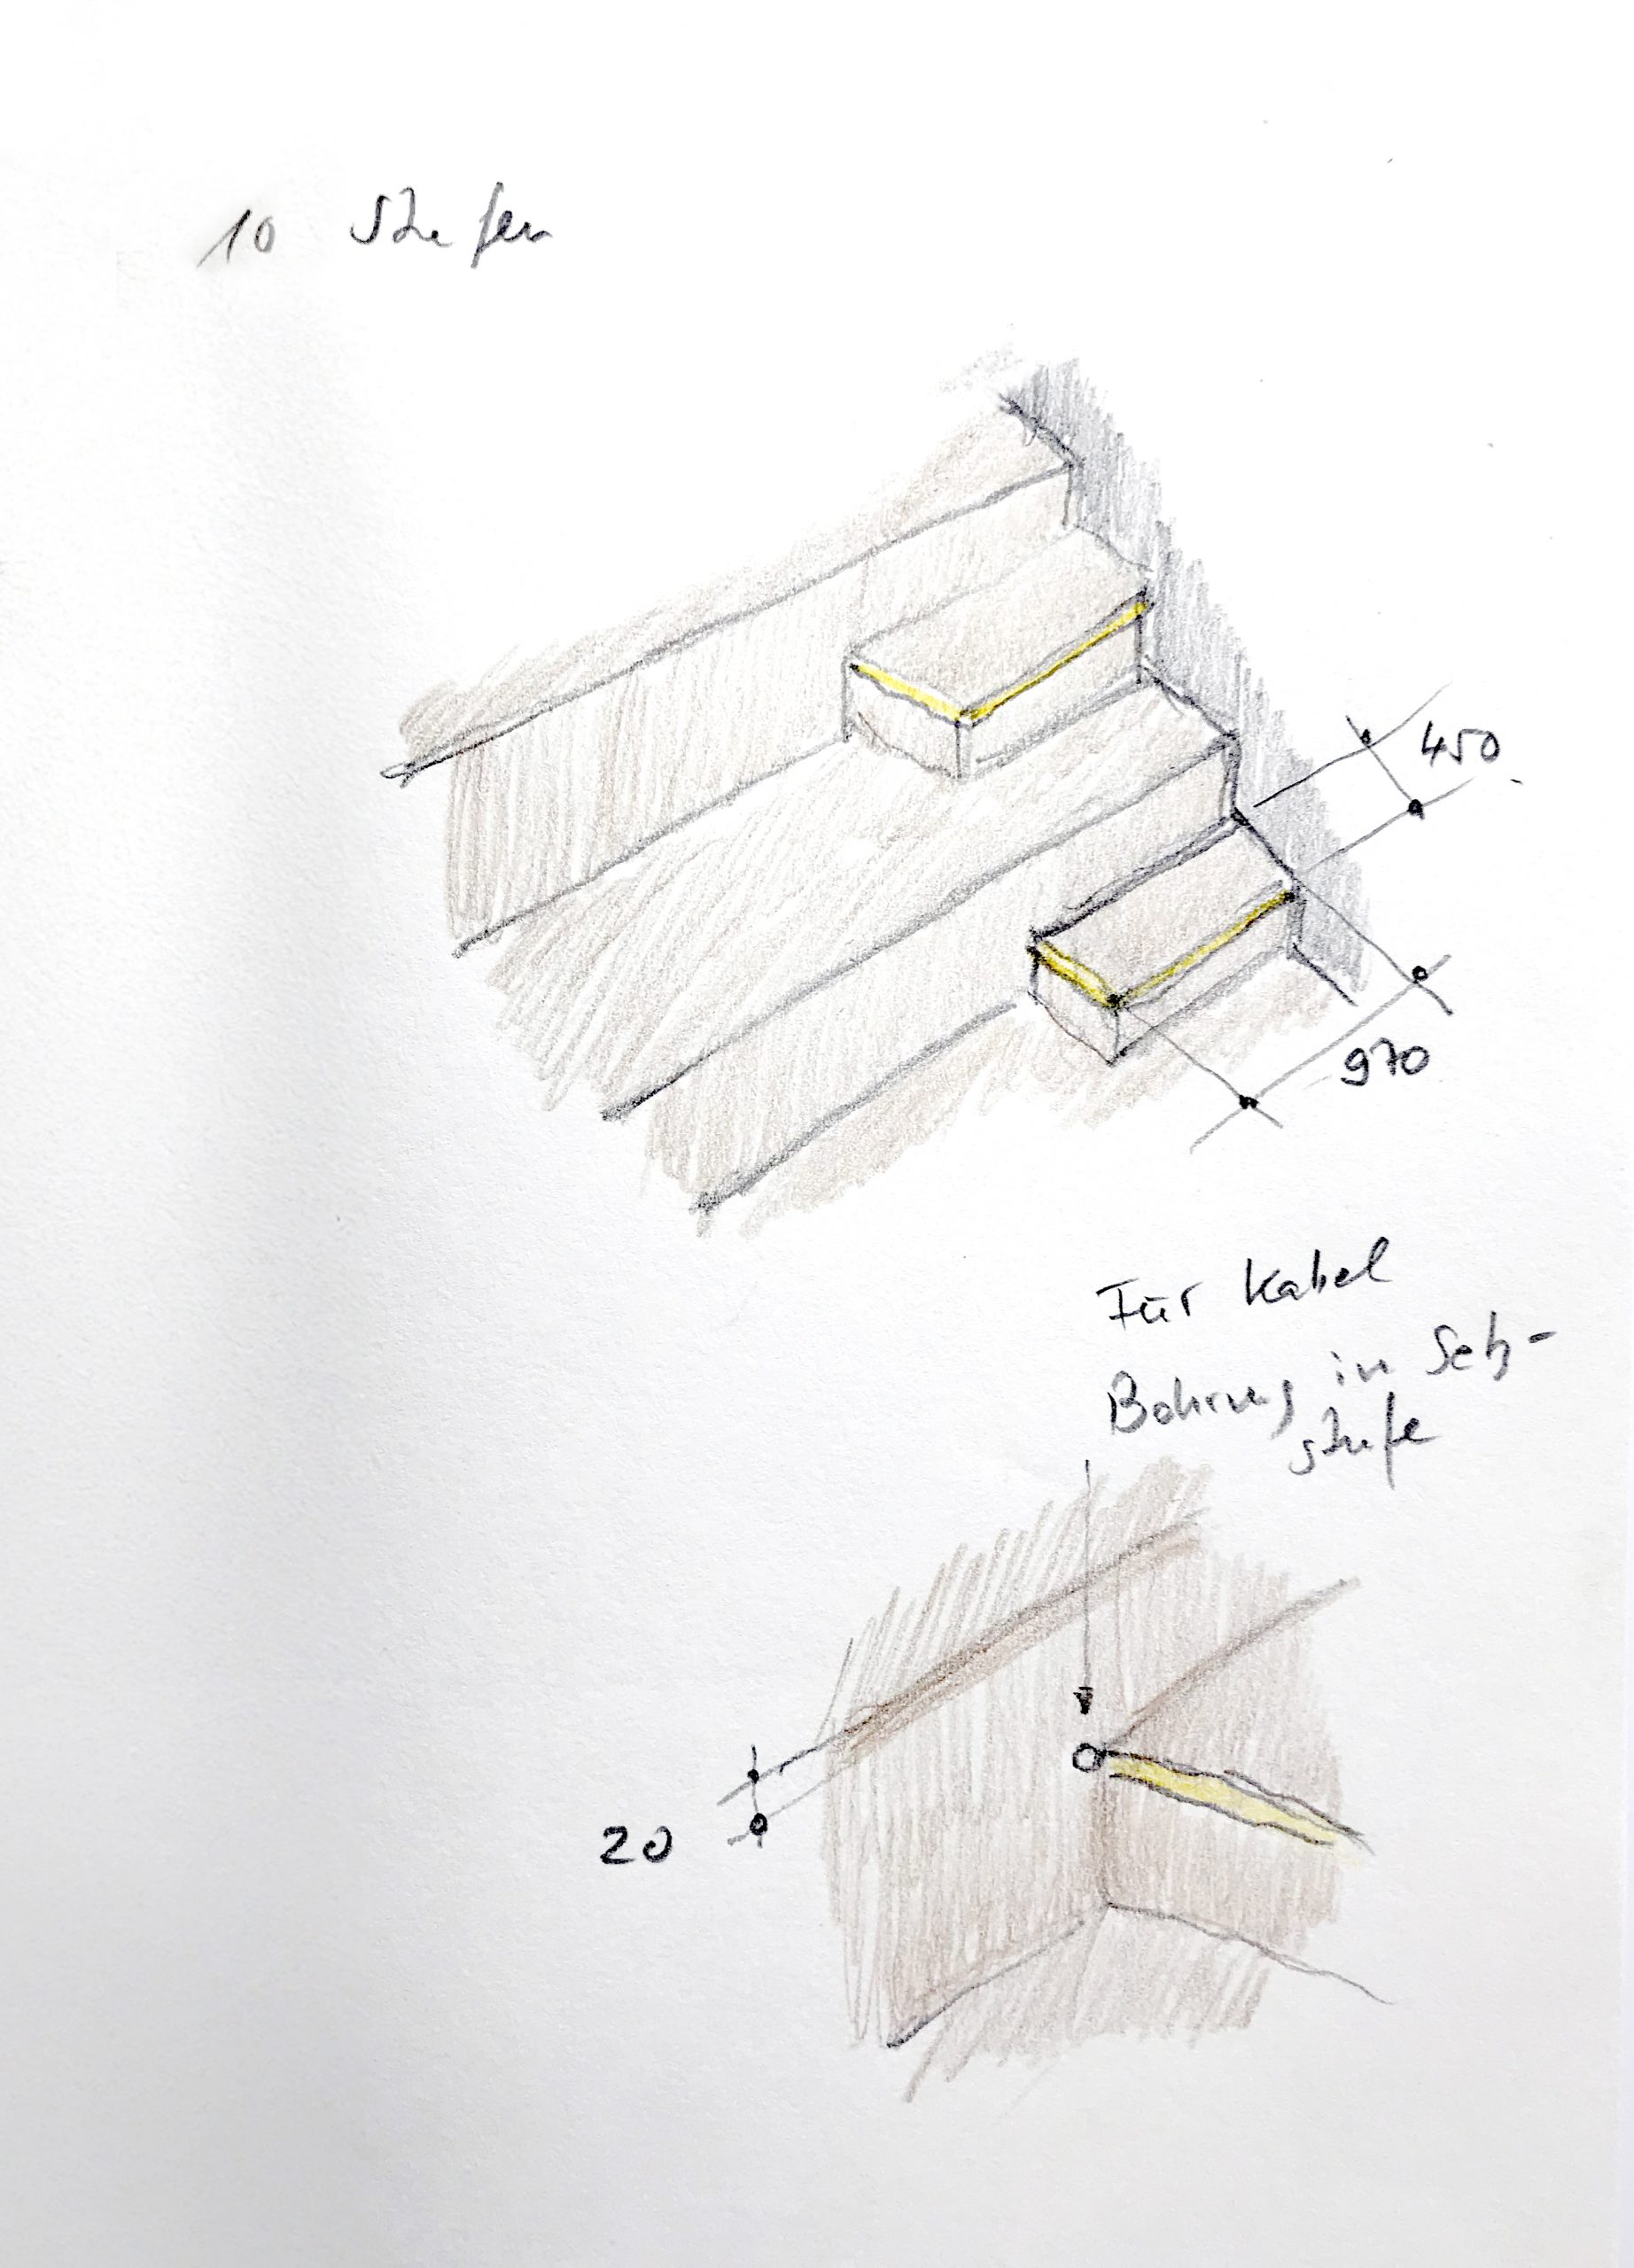 10 Stufen
450
970
Für Kabel
Bohrung in Setz-
stufe
20